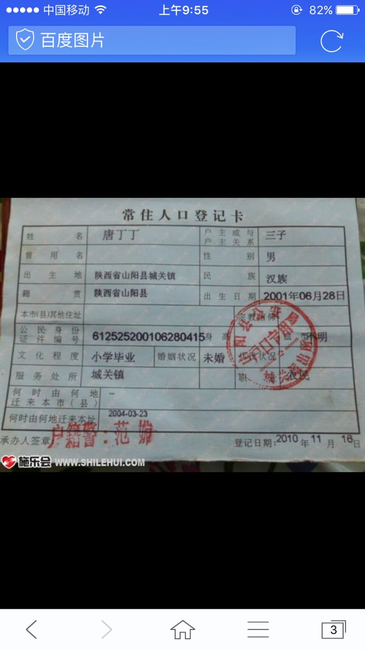 中国移动 上午9:55 82%
百度图片
常住人口登记卡
姓名 唐丁丁 户主或与户主关系 三子
曾用名 性别 男
出生地 陕西省山阳县城关镇 民族 汉族
籍贯 陕西省山阳县 出生日期 2001年06月28日
本市(县)其他住址
公民身份证件编号 612525200106280415 身高
文化程度 小学毕业 婚姻状况 未婚
服务处所 城关镇
何时由何地迁来本市(县) --
何时由何地迁来本址 2004-03-23
承办人签章: 户籍警:范 登记日期:2010年11月16日
施乐会 WWW.SHILEHUI.COM
3